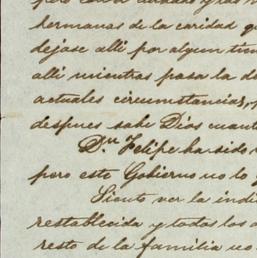 pero con el cuidado y las
hermanas de la caridad q
dejase alli por algun tiem
alli mientras pasa la d
actuales circunstancias,
despues sabe Dios cuant
Dn Felipe ha sido
pero este Gobierno no lo
Siento ver la indi
restablecida y todos los
resto de la familia no